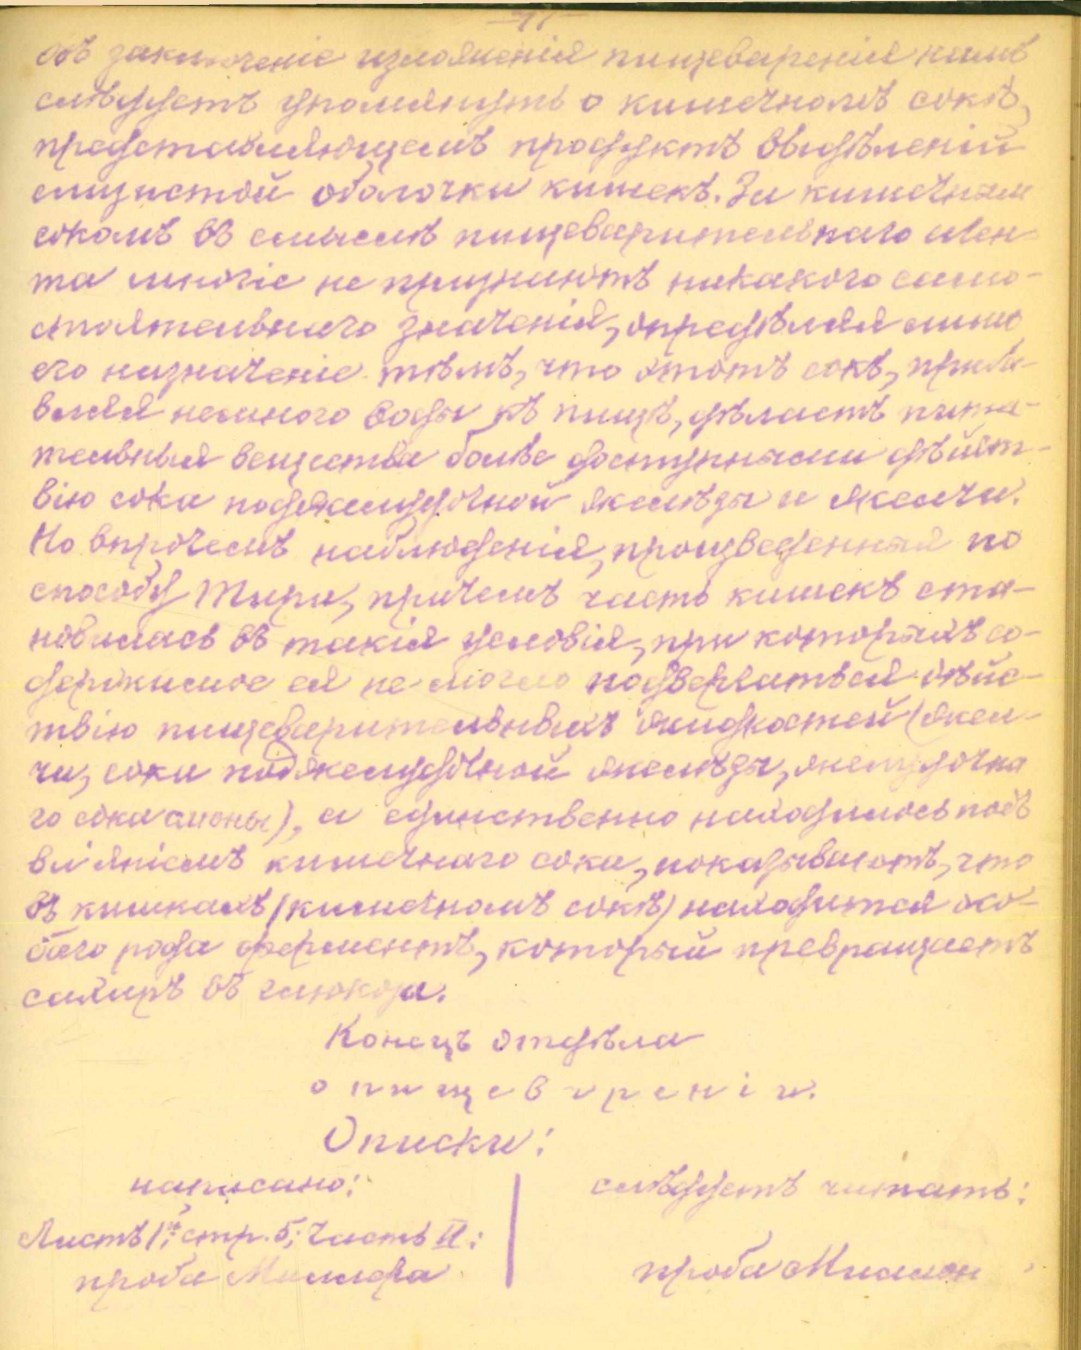 Въ заключеніе изложенія пищеваренія намъ
слѣдуетъ упомянуть о кишечномъ сокѣ,
представляющемъ продуктъ выдѣленій
слизистой оболочки кишекъ. За кишечнымъ
сокомъ въ смыслѣ пищеварительнаго аген-
та многіе не признаютъ никакого само-
стоятельнаго значенія, опредѣляя лишь
его назначеніе тѣмъ, что этотъ сокъ, приба-
вляя немного воды къ пищѣ, дѣлаетъ пита-
тельныя вещества болѣе доступными дѣйст-
вію сока поджелудочной железы и желчи.
Но впрочемъ наблюденія, произведенныя по
способу Тири, причемъ часть кишекъ ста-
новилась въ такія условія, при которыхъ со-
держимое ея не могло подвергаться дѣйс-
твію пищеварительныхъ жидкостей (жел-
чи, сока поджелудочной железы, желудочна
го сока слюны), а единственно находилось подъ
вліяніемъ кишечнаго сока, показываютъ, что
въ кишкахъ (кишечномъ сокѣ) находится осо-
баго рода ферментъ, который превращаетъ
сахаръ въ глюкозу.
Конецъ отдѣла
о пищевареніи.
Описки:
написано:
слѣдуетъ читать:
Листъ 1й; стр. 5; Часть II:
проба Миллера
проба Миллон